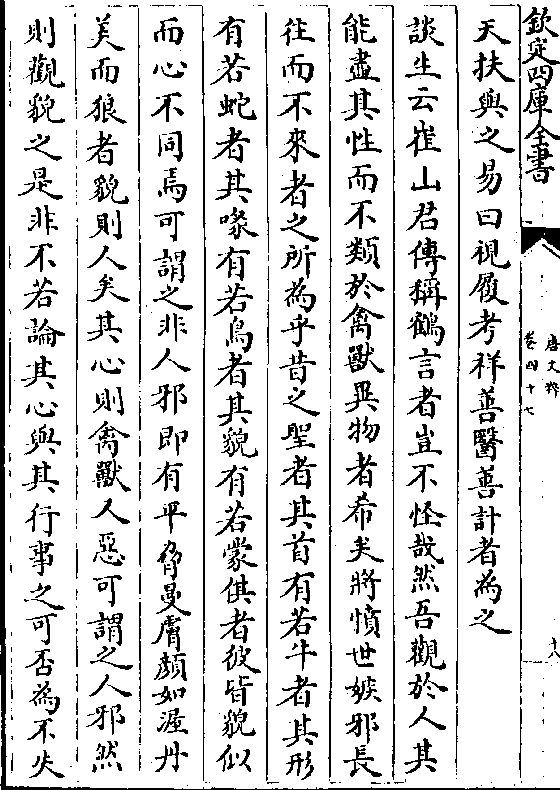 欽定四庫全書
唐文粹
卷四十七
十八
天扶與之易曰視履考祥善醫善計者為之
談生云崔山君傳稱鶴言者豈不怪哉然吾觀於人其
能盡其性而不類於禽獸異物者希矣將憤世嫉邪長
往而不來者之所為乎昔之聖者其首有若牛者其形
有若蛇者其喙有若鳥者其貌有若蒙倛者彼皆貌似
而心不同焉可謂之非人邪即有平脅曼膚顏如渥丹
美而狼者貌則人矣其心則禽獸人惡可謂之人邪然
則觀貌之是非不若論其心與其行事之可否為不失